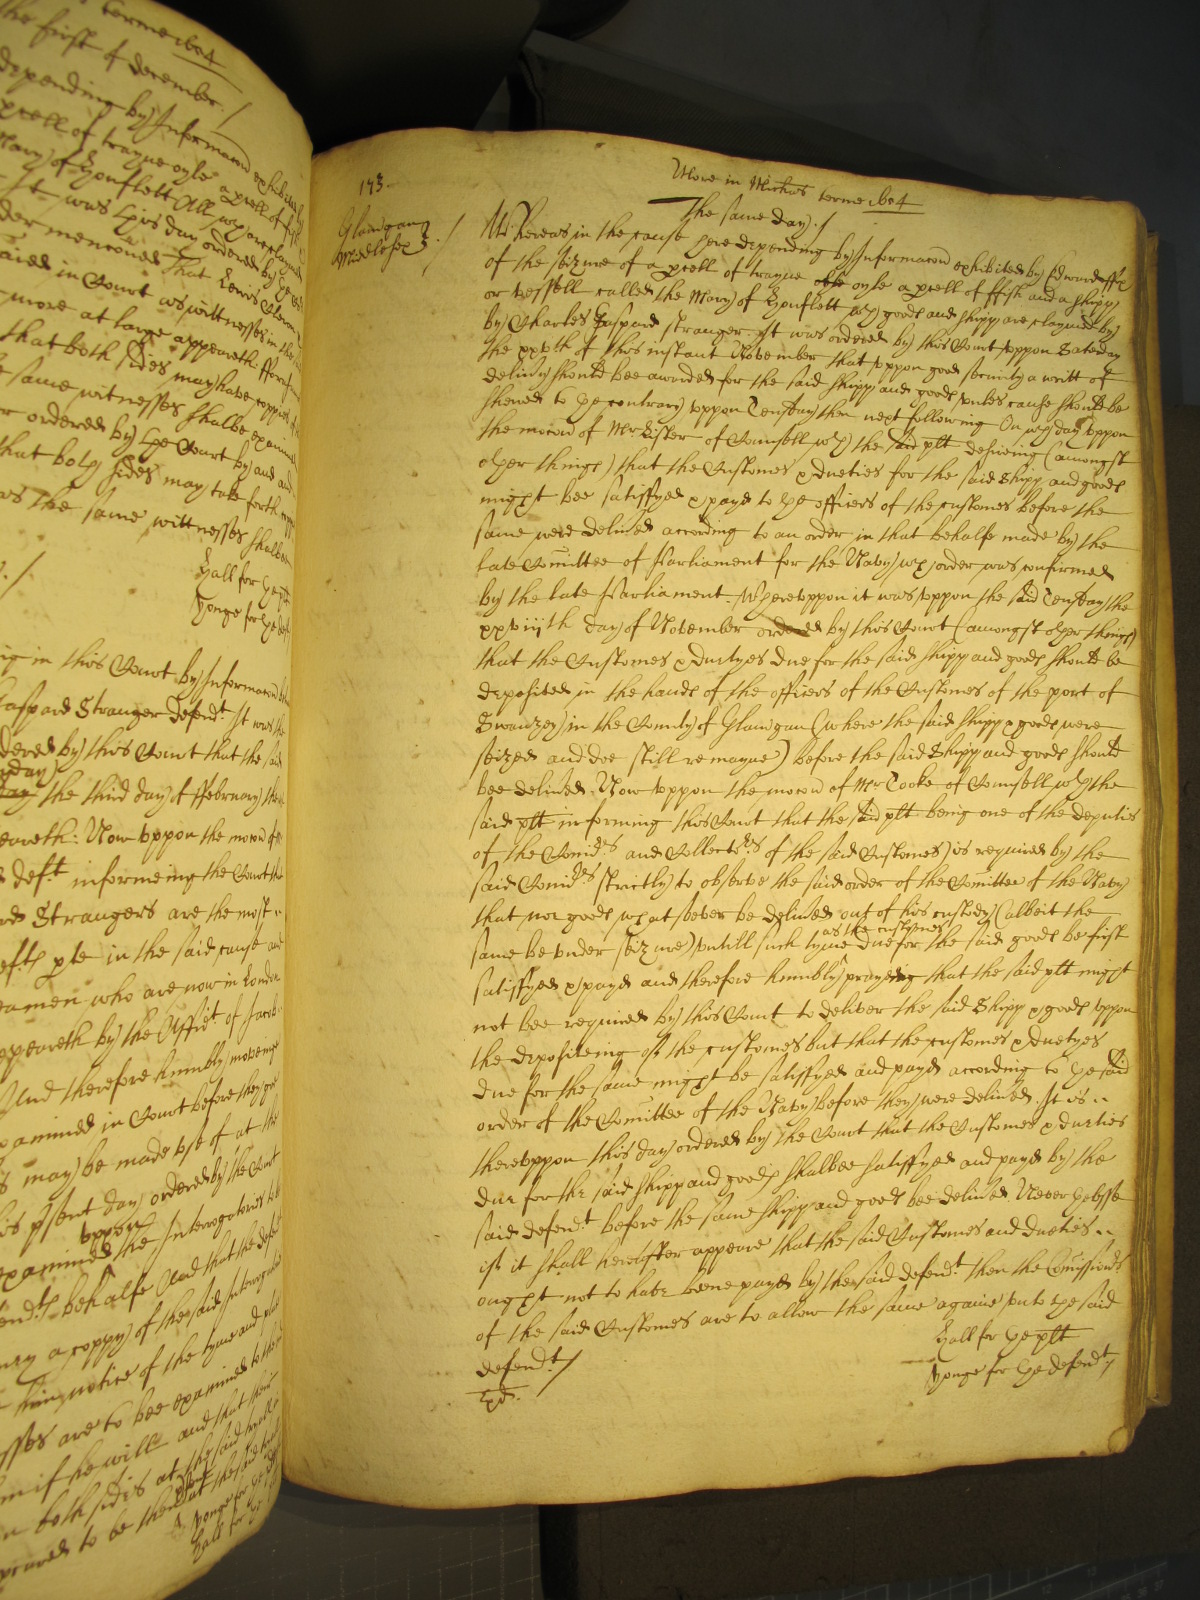 terme 1654
the first of december ./
depending by Informacon exhibited by
prcell of trayne oyle a prcell of fish
Mary of Honflett All wch are claymed
It was this day ordered by the
der menconed That Lewis
aied in Court as wittnesses in the
more at large appeareth
that both sides may have coppies
same wittnesses shalbe examined
ordered by the Court by and
that both sides may take forth
as the same wittnesses shalbe
Hall for the plt
Yonge for the deft
ng in this Court by Informacon
Gaspard Stranger defendt. It was the
dered by this Court that the said
day the third day of ffebruary
eareth: Now vppon the mocon of
deft informeing the Court that
Strangers are the most
efts pte in the said cause and
eamen who are now in London
ppeareth by the Affidt of Jacob
And therefore humbly moveing
xamined in Court before they goe
may be made vse of at the
his psent day ordered by the Court
vppon
examined the Interogatories
endts behalfe And that the
a coppy of the said Interogatories
him notice of the tyme and place
sses are to bee examined to the
if he will and that the
both sides at the said
to be then at the said
Yonge for the
Hall for the
173
More in Michas terme 1654
The same day ./
Glamorgan
Middlesex ./
Whereas in the cause here depending by Informacon exhibited by Edward
of the seizure of a prcell of trayne oyle a prcell of ffish and a shipp
or vessell called the Mary of Honflett wch goods and shipp are claymed by
by Charles Gaspard stranger. It was ordered by this Court vppon Saterday
the xxvth of this instant November that vppon good security a writt of
delivery should bee awarded for the said shipp and goods vnles cause should be
shewed to the contrary vppon Teusday then next following On wch day vppon
the mocon of Mr Lister of Counsell wth the said plt desireing (amongst
other things) that the Customes & dueties for the said Shipp and goods
might bee satisfyed & payd to the officers of the customes before the
same were delived according to an order in that behalfe made by the
late Comittee of Parliament for the Navy wch order was confirmed
by the late Parliament. Wherevppon it was vppon the said Teusday the
xxviiith day of November ordered by this Court (amongst other things)
that the Customes & duetyes due for the said shipp and goods should be
deposited in the hands of the officers of the Customes of the port of
Swanzey in the County of Glamorgan (where the said shipp & goods were
seized and doe still remayne) before the said Shipp and goods should
bee delived. Now vppon the mocon of Mr Cooke of Counsell wth the
said plt informing this Court that the said plt being one of the deputies
of the Comrs and Collectrs of the said Customes) is required by the
said Comrs strictly to observe the said order of the Comittee of the Navy
that noe goods whatsoever be delived out of his custody (albeit the
same be vnder seizure) vntill such tyme as the customes due for the said goods be first
satisfyed & payd and therefore humbly praying that the said plt might
not bee required by this Court to deliver the said Shipp & goods vppon
the depositeing of the customes but that the customes & duetyes
due for the same might be satisfyed and payd according to the said
order of the Comittee of the Navy before they were delived. It is
therevppon this day ordered by the Court that the Customes & dueties
due for the said shipp and goods shalbee satisfyed and payd by the
said defendt before the same shipp and goods bee delived. Neverthelesse
if it shall hereafter appeare that the said Customes and dueties
ought not to have beene payd by the said defendt then the Comissionrs
of the said Customes are to allow the same againe vnto the said
defendt ./
Hall for the plt
Yonge for the defendt